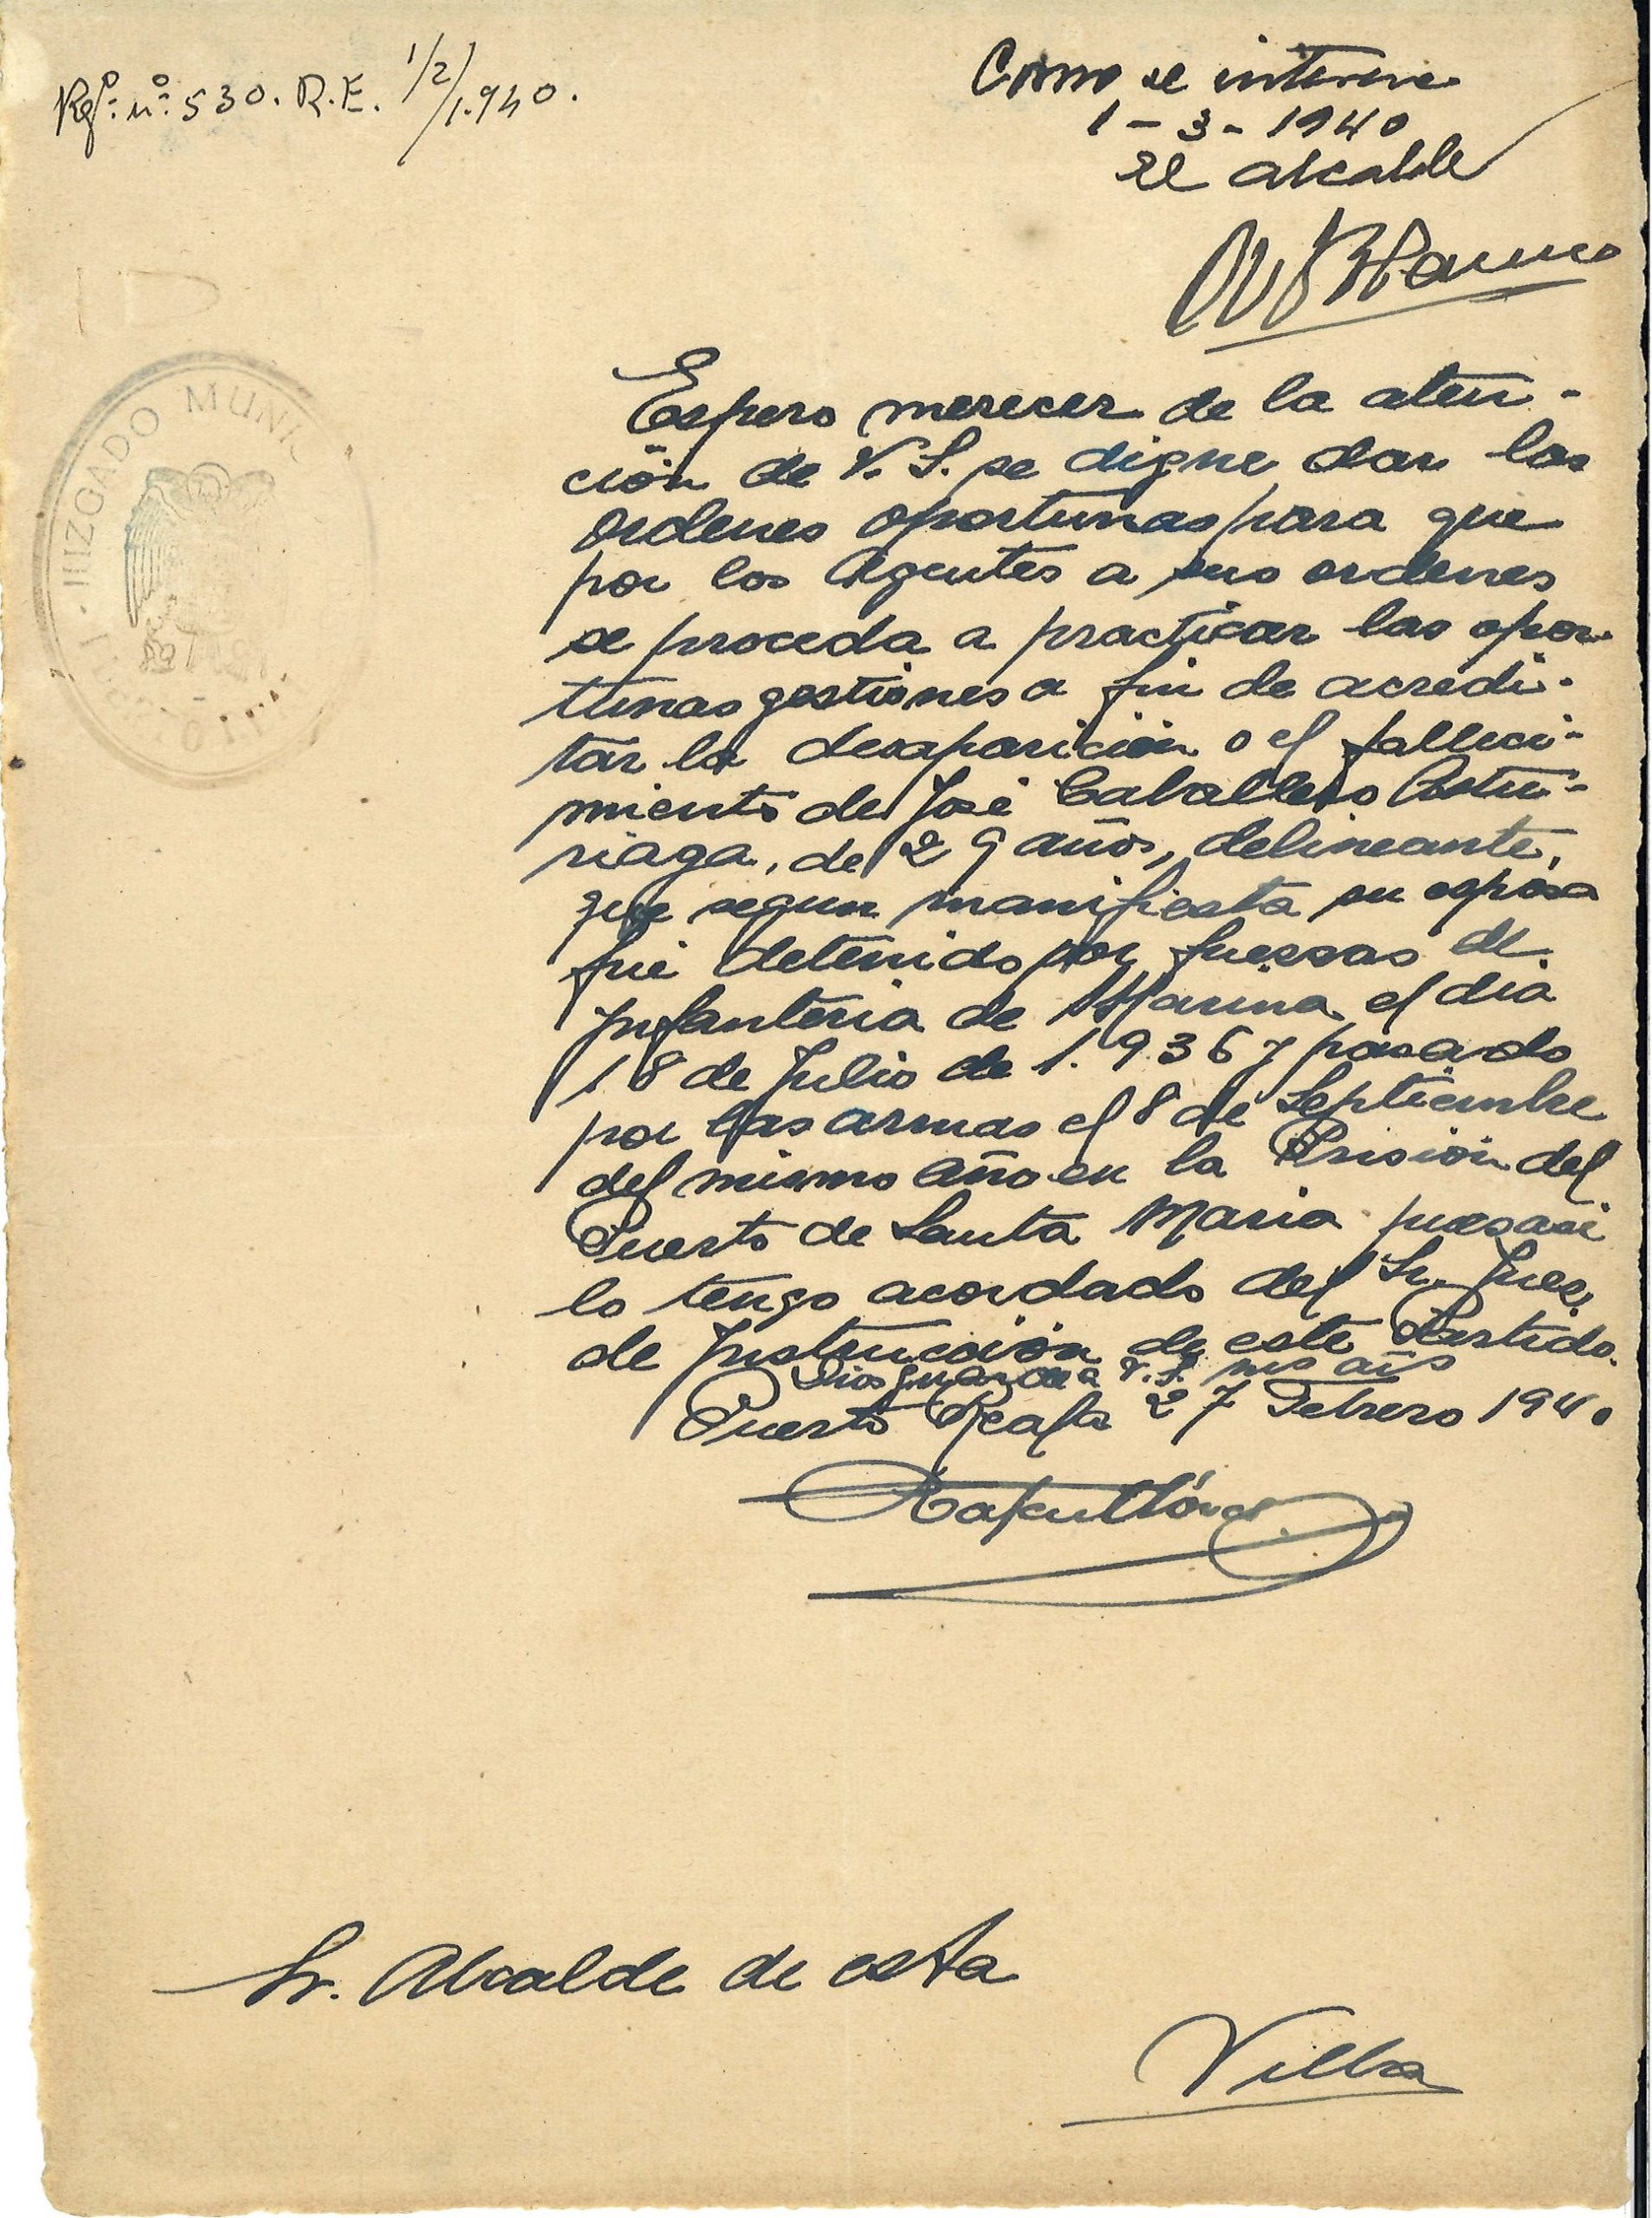 Rgº: nº: 530. R.E. 1/2/1.940.
Como se interesa
1-3-1940
El alcalde
JUZGADO MUNIC
Espero merecer de la aten-
ción de V. S. se digne dar las
ordenes oportunas para que
por los Agentes a sus ordenes
se proceda a practicar las opor-
tunas gestiones a fin de acredi-
tar la desaparición o el falleci-
miento de José Caballero Astu-
riaga, de 29 años, delineante,
que segun manifiesta su esposa
fué detenido por fuerzas de
Infanteria de Marina el dia
18 de Julio de 1.936 y pasado
por las armas el 8 de Septiembre
del mismo año en la Prisión del
Puerto de Santa Maria pues asi
lo tengo acordado del Sr. Juez
de Instrucción de este Partido.
Dios guarde a V. S. ms añs
Puerto Real a 27 Febrero 1940
Sr. Alcalde de esta
Villa